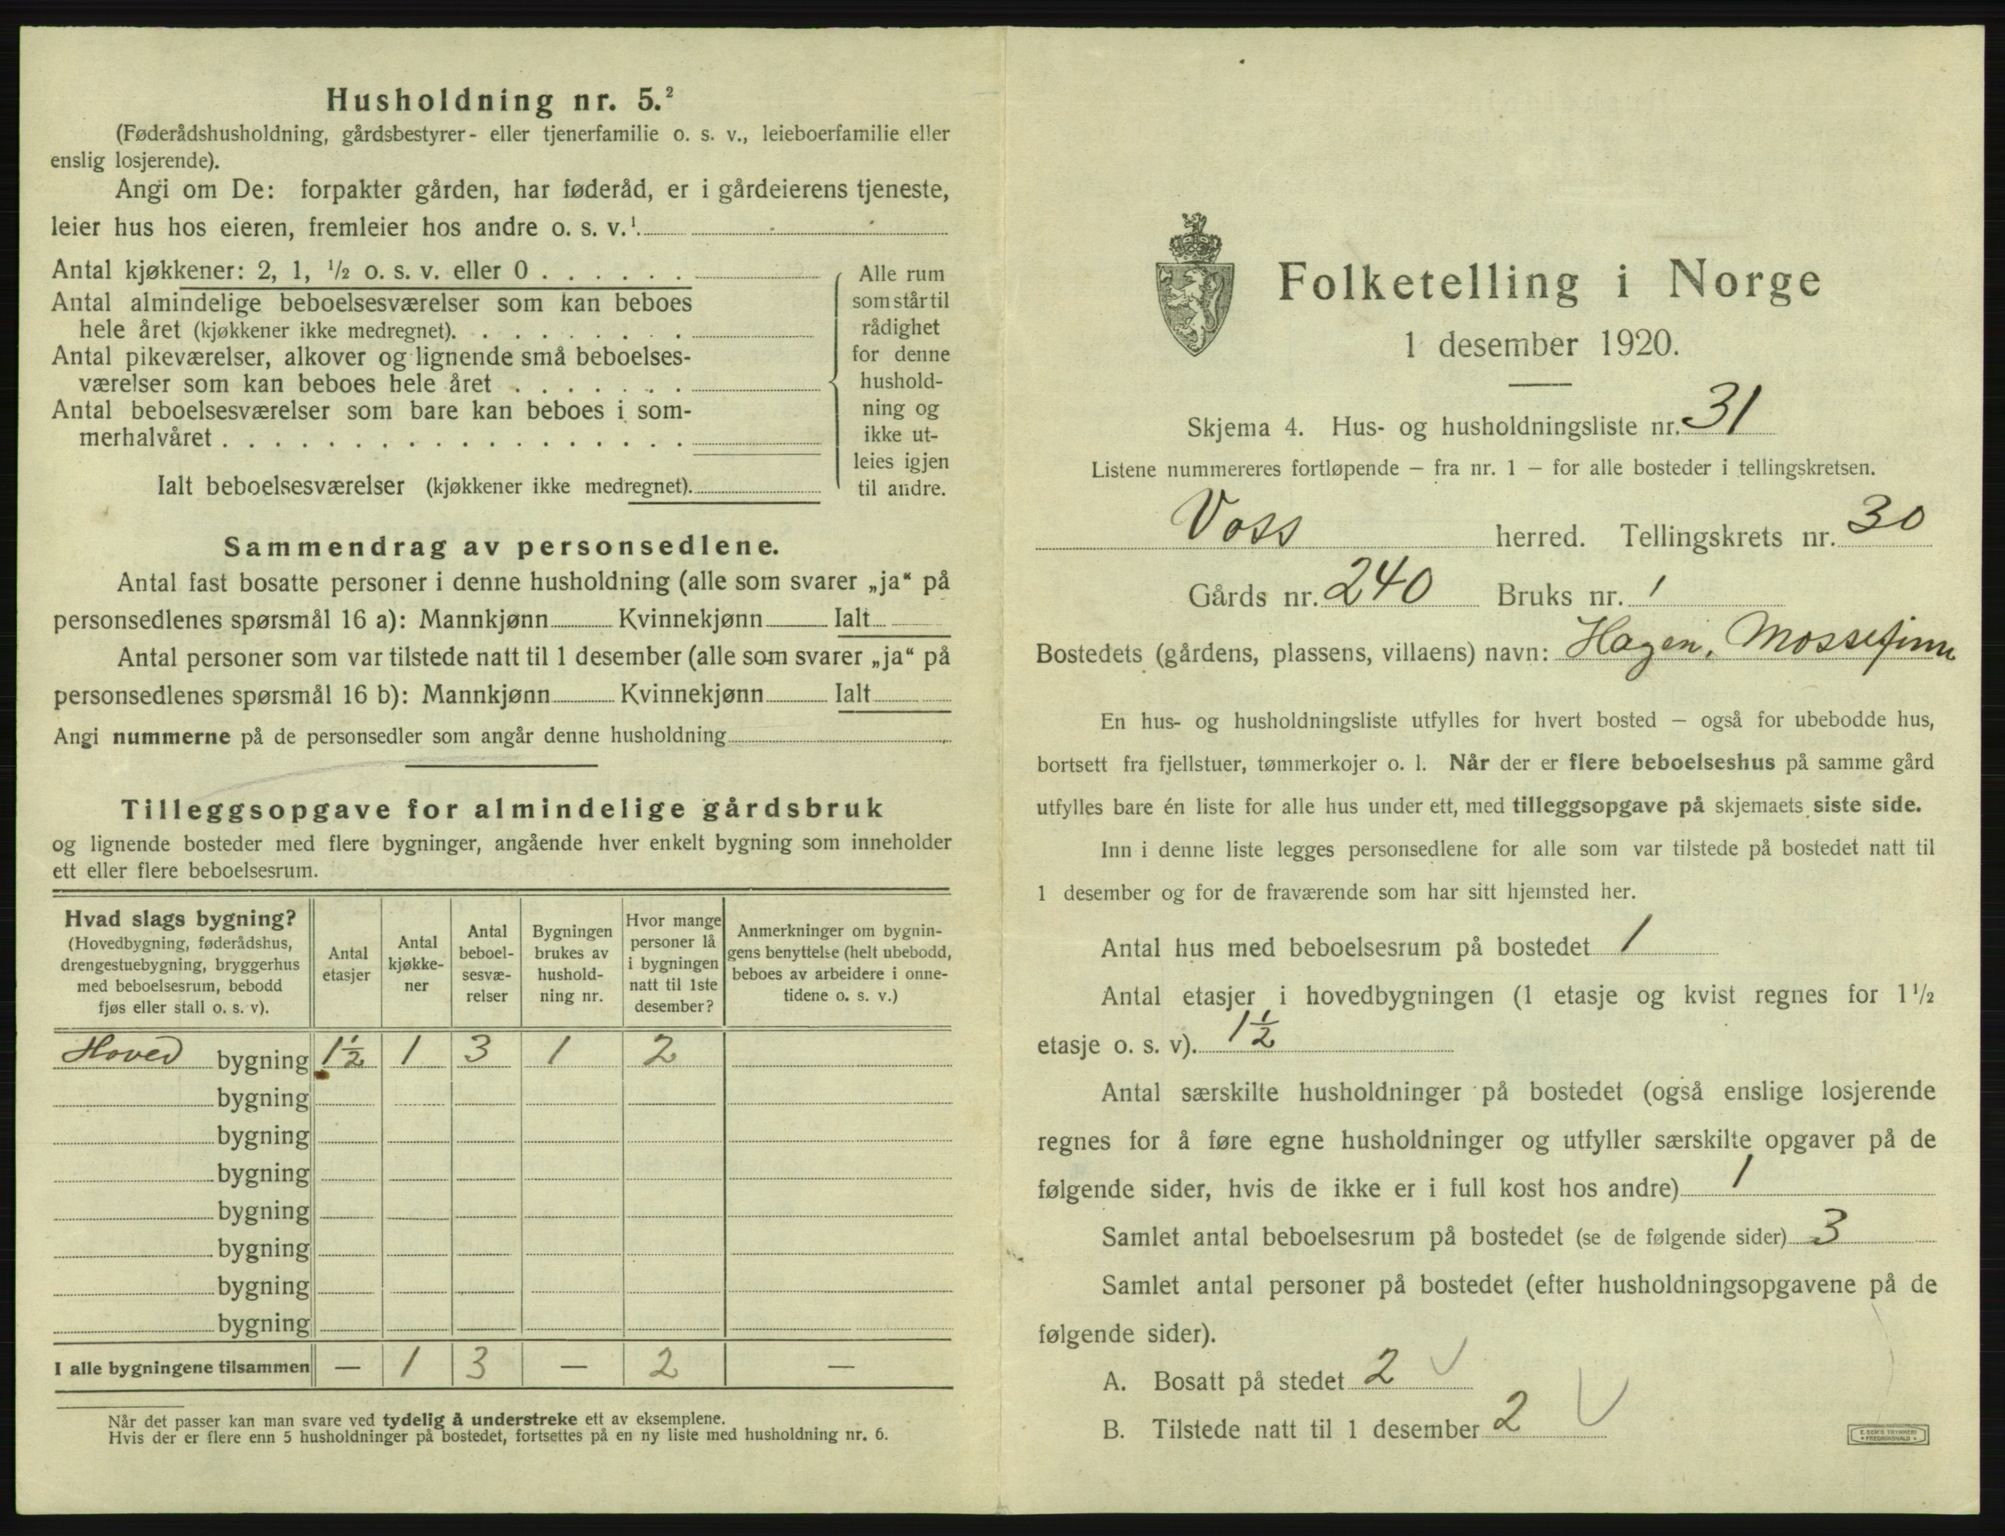 Husholdning nr. 5.²
(Føderådshusholdning, gårdsbestyrer- eller tjenerfamilie o. s. v., leieboerfamilie eller
enslig losjerende).
Angi om De: forpakter gården, har føderåd, er i gårdeierens tjeneste,
leier hus hos eieren, fremleier hos andre o. s. v.¹
Antal kjøkkener: 2, 1, ½ o. s. v. eller 0 . . . . . .
Antal almindelige beboelsesværelser som kan beboes
hele året (kjøkkener ikke medregnet). . . . . . . . .
Antal pikeværelser, alkover og lignende små beboelses-
værelser som kan beboes hele året . . . . . . .
Antal beboelsesværelser som bare kan beboes i som-
merhalvåret . . . . . . . . . . . . . . . . . .
Ialt beboelsesværelser (kjøkkener ikke medregnet).
Alle rum
som står til
rådighet
for denne
hushold-
ning og
ikke ut-
leies igjen
til andre.
Sammendrag av personsedlene.
Antal fast bosatte personer i denne husholdning (alle som svarer „ja“ på
personsedlenes spørsmål 16 a): Mannkjønn Kvinnekjønn Ialt
Antal personer som var tilstede natt til 1 desember (alle som svarer „ja“ på
personsedlenes spørsmål 16 b): Mannkjønn Kvinnekjønn Ialt
Angi nummerne på de personsedler som angår denne husholdning
Tilleggsopgave for almindelige gårdsbruk
og lignende bosteder med flere bygninger, angående hver enkelt bygning som inneholder
ett eller flere beboelsesrum.
Hvad slags bygning?
(Hovedbygning, føderådshus,
drengestuebygning, bryggerhus
med beboelsesrum, bebodd
fjøs eller stall o. s. v).
Antal
etasjer
Antal
kjøkke-
ner
Antal
beboel-
sesvæ-
relser
Bygningen
brukes av
hushold-
ning nr.
Hvor mange
personer lå
i bygningen
natt til 1ste
desember?
Anmerkninger om bygnin-
gens benyttelse (helt ubebodd,
beboes av arbeidere i onne-
tidene o. s. v.)
Hoved bygning 1½ 1 3 1 2
bygning
bygning
bygning
bygning
bygning
bygning
bygning
I alle bygningene tilsammen — 1 3 — 2 —
Når det passer kan man svare ved tydelig å understreke ett av eksemplene.
Hvis der er flere enn 5 husholdninger på bostedet, fortsettes på en ny liste med husholdning nr. 6.
Folketelling i Norge
1 desember 1920.
Skjema 4. Hus- og husholdningsliste nr. 31
Listene nummereres fortløpende – fra nr. 1 – for alle bosteder i tellingskretsen.
Voss herred. Tellingskrets nr. 30
Gårds nr. 240 Bruks nr. 1
Bostedets (gårdens, plassens, villaens) navn: Hagen, Mossefinn
En hus- og husholdningsliste utfylles for hvert bosted – også for ubebodde hus,
bortsett fra fjellstuer, tømmerkojer o. l. Når der er flere beboelseshus på samme gård
utfylles bare én liste for alle hus under ett, med tilleggsopgave på skjemaets siste side.
Inn i denne liste legges personsedlene for alle som var tilstede på bostedet natt til
1 desember og for de fraværende som har sitt hjemsted her.
Antal hus med beboelsesrum på bostedet 1
Antal etasjer i hovedbygningen (1 etasje og kvist regnes for 1½
etasje o. s. v). 1½
Antal særskilte husholdninger på bostedet (også enslige losjerende
regnes for å føre egne husholdninger og utfyller særskilte opgaver på de
følgende sider, hvis de ikke er i full kost hos andre) 1
Samlet antal beboelsesrum på bostedet (se de følgende sider) 3
Samlet antal personer på bostedet (efter husholdningsopgavene på de
følgende sider).
A. Bosatt på stedet 2
B. Tilstede natt til 1 desember 2
E. SEM'S TRYKKERI
FREDRIKSHALD